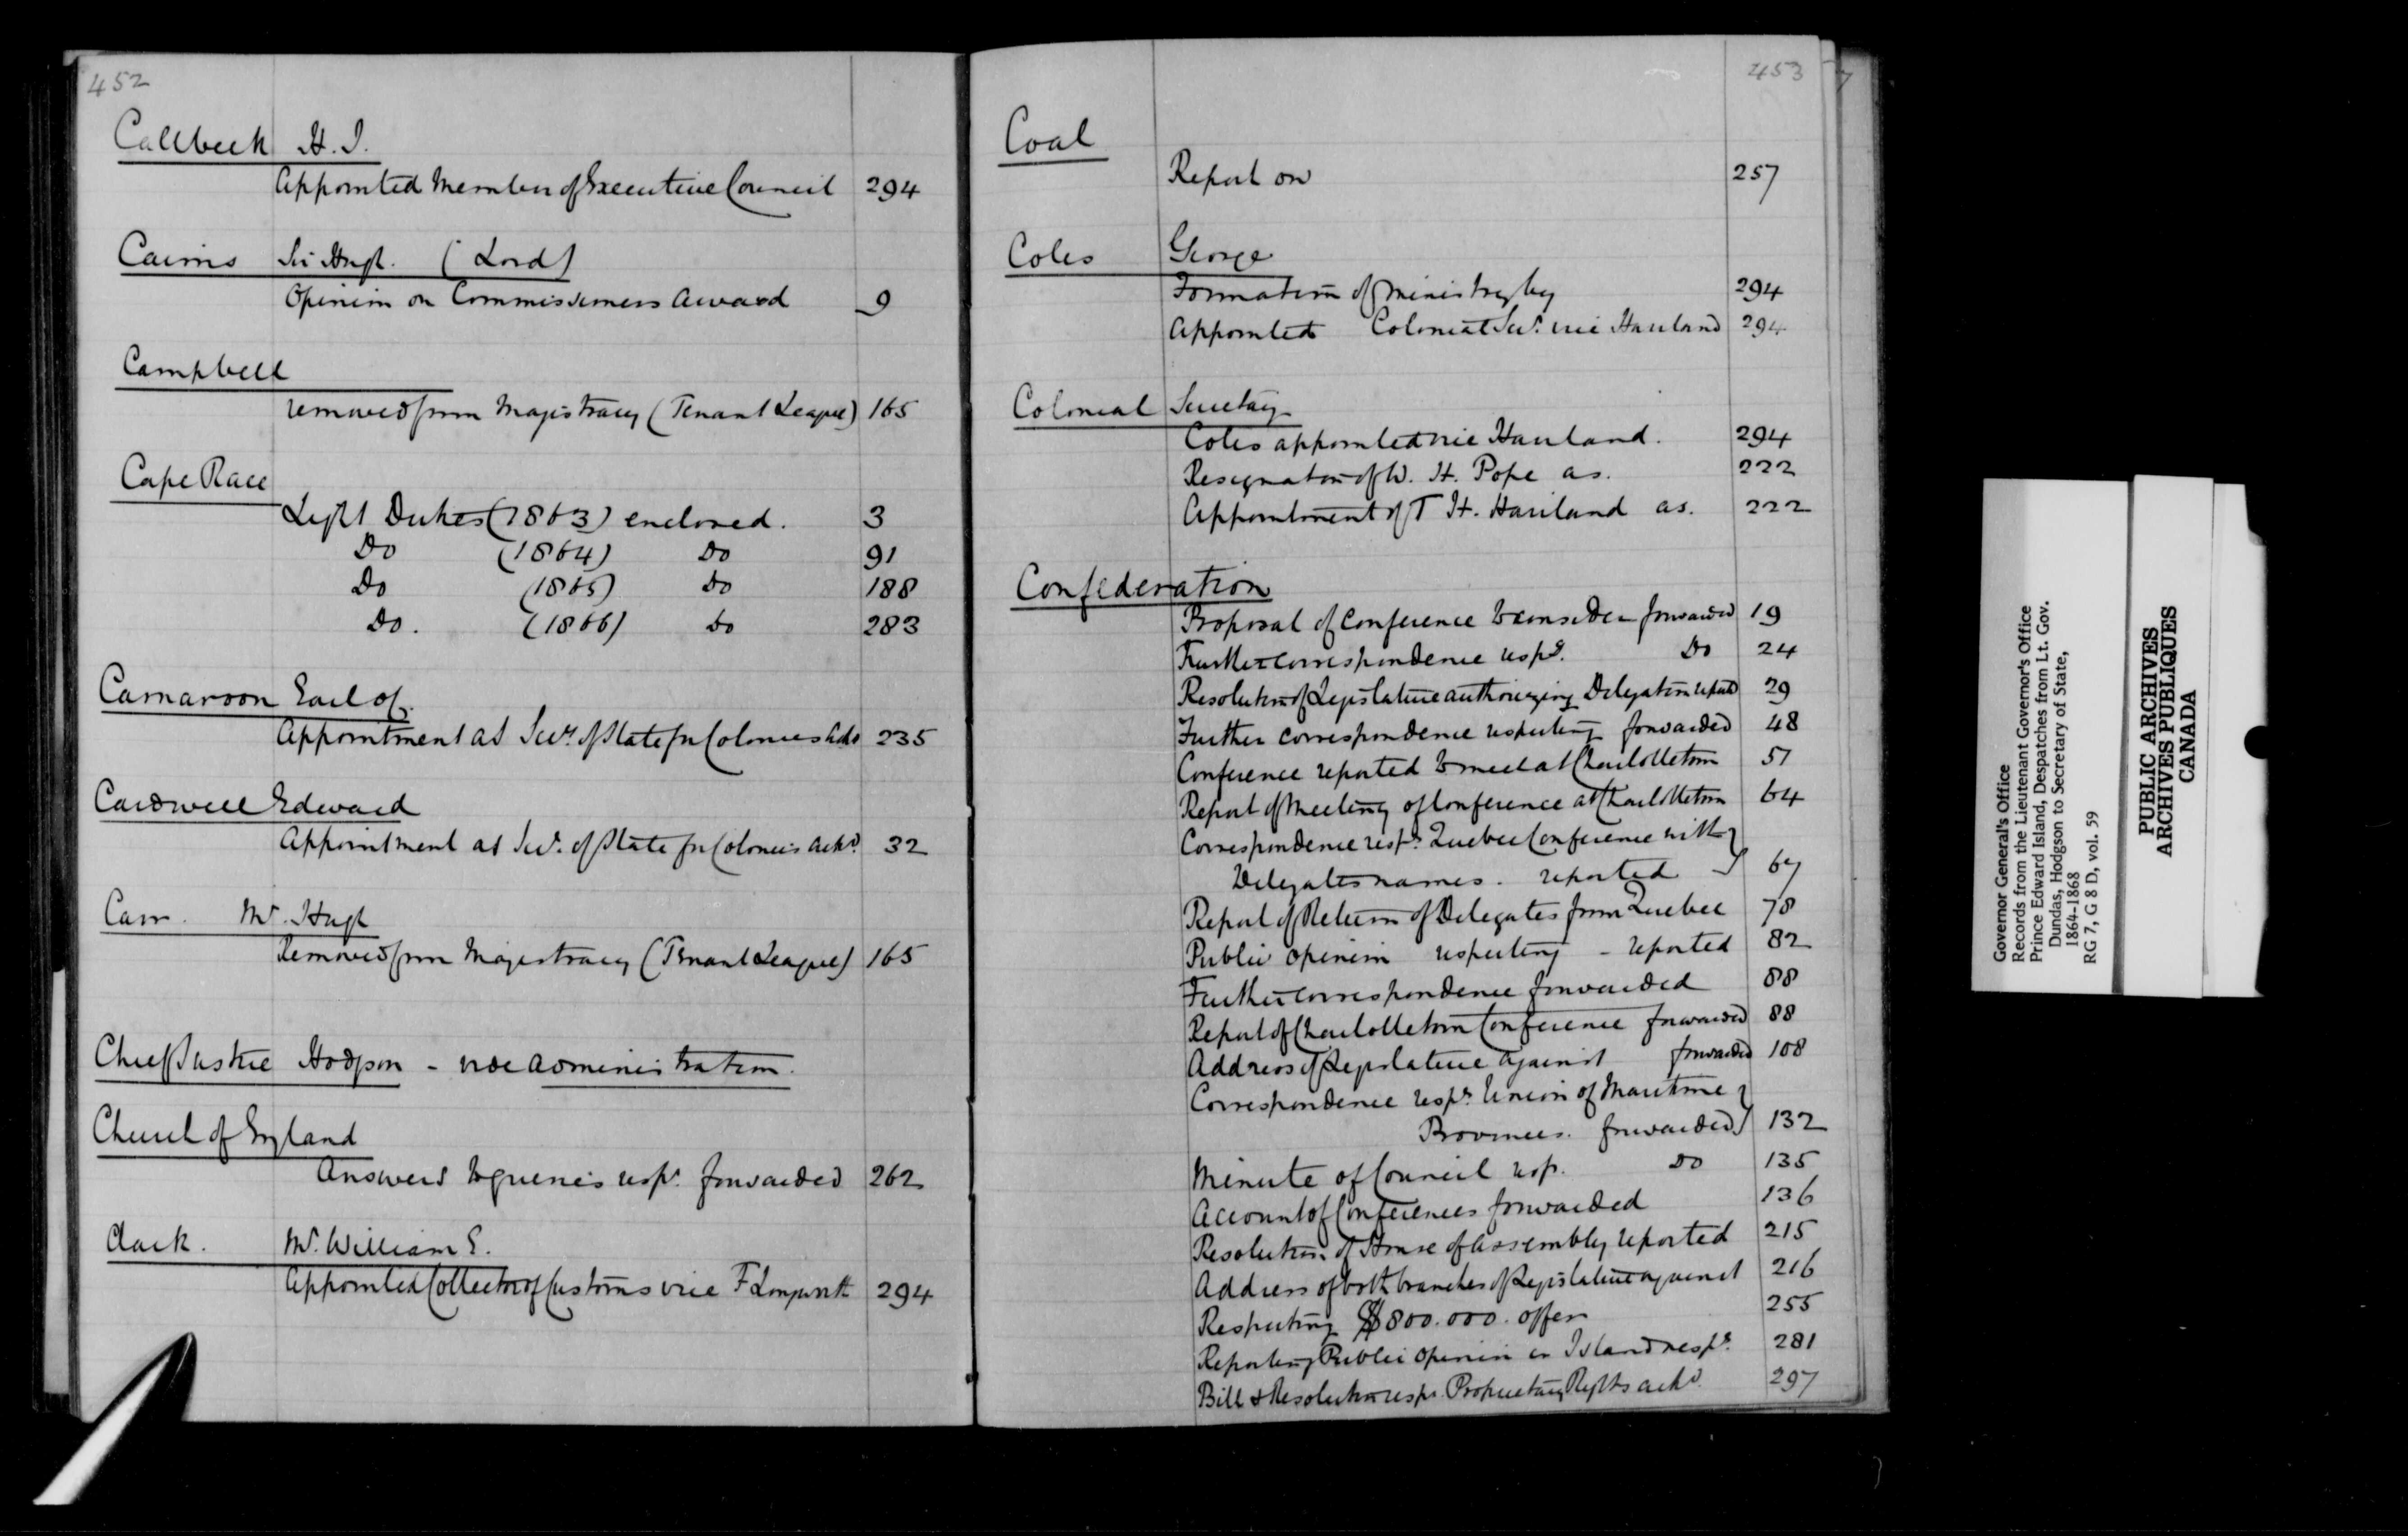 452
Callbeck H. J.
Appointed Member of Executive Council 294
Cairns Sir Hugh. (Lord)
Opinion on Commissioners Award 9
Campbell
removed from Magistracy (Tenant League) 165
Cape Race
Light Dukes (1863) enclosed. 3
Do (1864) Do 91
Do (1865) Do 188
Do. (1866) Do 283
Carnarvon Earl of.
Appointment as Secy. of State for Colonies ackd 235
Cardwell Edward
Appointment as Secy. of State for Colonies ackd. 32
Carr. Mr. Hugh
Removed from Magistracy (Tenant League) 165
Chief Justice Hodgson - vide administration.
Church of England
Answers to queries respg. forwarded 262
Clark. Mr. William E.
Appointed Collector of Customs vice F Longworth 294
453
Coal
Report on 257
Coles George
Formation of Ministry by 294
Appointed Colonial Secy. vice Haviland 294
Colonial Secretary
Coles appointed vice Haviland. 294
Resignation of W. H. Pope as. 222
Appointment of T H. Haviland as. 222
Confederation
Proposal of Conference to consider forwarded 19
Further correspondence respg. Do 24
Resolution of Legislature authorizing Delegation reportd 29
Further correspondence respecting forwarded 48
Conference reported to meet at Charlottetown 51
Report of Meeting of Conference at Charlottetown 64
Correspondence respg. Quebec Conference with }
Delegates names. reported } 67
Report of Return of Delegates from Quebec 78
Public opinion respecting - reported 82
Further correspondence forwarded 88
Report of Charlottetown Conference forwarded 88
Address of Legislature against forwarded 108
Correspondence respg. Union of Maritime }
Provinces. forwarded } 132
Minute of Council resp. Do 135
Account of Conferences forwarded 136
Resolution of House of Assembly reported 215
Address of both branches of Legislature against 216
Respecting $800.000. offer 255
Reporting Public opinion in Island respg. 281
Bill & Resolution respg. Proprietary Rights ackd. 297
Governor General's Office
Records from the Lieutenant Governor's Office
Prince Edward Island, Despatches from Lt. Gov.
Dundas, Hodgson to Secretary of State,
1864-1868
RG 7, G 8 D, vol. 59
PUBLIC ARCHIVES
ARCHIVES PUBLIQUES
CANADA